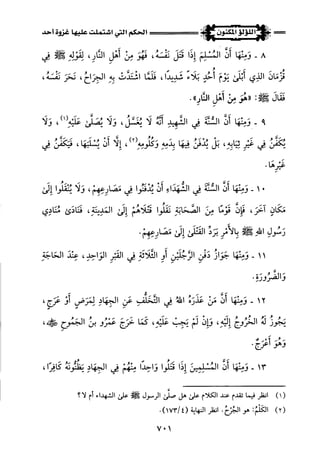 اللؤلؤ المكنون
الحكم التي اشتملت عليها غزوة أحد
٨ - وَمِنْهَا أَنَّ المُسْلِمَ إِذَا قَتَلَ نَفْسَهُ، فَهُوَ مِنْ أَهْلِ النَّارِ، لِقَوْلِهِ ﷺ فِي
قُزْمَانَ الذِي أَبْلَى يَوْمَ أُحُدٍ بَلَاءً شَدِيدًا، فَلَمَّا اشْتَدَّتْ بِهِ الجِرَاحُ، نَحَرَ نَفْسَهُ،
فَقَالَ ﷺ: «هُوَ مِنْ أَهْلِ النَّارِ».
٩ - وَمِنْهَا أَنَّ السُّنَّةَ فِي الشَّهِيدِ أَنَّهُ لَا يُغَسَّلُ، وَلَا يُصَلَّى عَلَيْهِ(١)، وَلَا
يُكَفَّنُ فِي غَيْرِ ثِيَابِهِ، بَلْ يُدْفَنُ فِيهَا بِدَمِهِ وَكُلُومِهِ(٢)، إِلَّا أَنْ يُسْلَبَهَا، فَيُكَفَّنُ فِي
غَيْرِهَا.
١٠ - وَمِنْهَا أَنَّ السُّنَّةَ فِي الشُّهَدَاءِ أَنْ يُدْفَنُوا فِي مَصَارِعِهِمْ، وَلَا يُنْقَلُوا إِلَى
مَكَانٍ آخَرَ، فَإِنَّ قَوْمًا مِنَ الصَّحَابَةِ نَقَلُوا قَتْلَاهُمْ إِلَى المَدِينَةِ، فَنَادَى مُنَادِي
رَسُولِ اللهِ ﷺ بِالْأَمْرِ بِرَدِّ القَتْلَى إِلَى مَصَارِعِهِمْ.
١١ - وَمِنْهَا جَوَازُ دَفْنِ الرَّجُلَيْنِ أَوِ الثَّلَاثَةِ فِي القَبْرِ الوَاحِدِ، عِنْدَ الحَاجَةِ
وَالضَّرُورَةِ.
١٢ - وَمِنْهَا أَنَّ مَنْ عَذَرَهُ اللهُ فِي التَّخَلُّفِ عَنِ الجِهَادِ لِمَرَضٍ أَوْ عَرَجٍ،
يَجُوزُ لَهُ الخُرُوجُ إِلَيْهِ، وَإِنْ لَمْ يَجِبْ عَلَيْهِ، كَمَا خَرَجَ عَمْرُو بنُ الجَمُوحِ ﷺ،
وَهُوَ أَعْرَجُ.
١٣ - وَمِنْهَا أَنَّ المُسْلِمِينَ إِذَا قَتَلُوا وَاحِدًا مِنْهُمْ فِي الجِهَادِ يَظُنُّونَهُ كَافِرًا،
(١) انظر فيما تقدم عند الكلام على هل صلَّى الرسول ﷺ على الشهداء أم لا؟
(٢) الكَلْمُ: هو الجُرْحُ. انظر النهاية (١٧٣/٤).
٧٠١